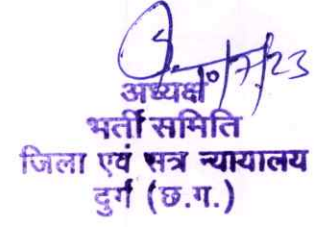 10/7/23
अध्यक्ष
भर्ती समिति
जिला एवं सत्र न्यायालय
दुर्ग (छ.ग.)